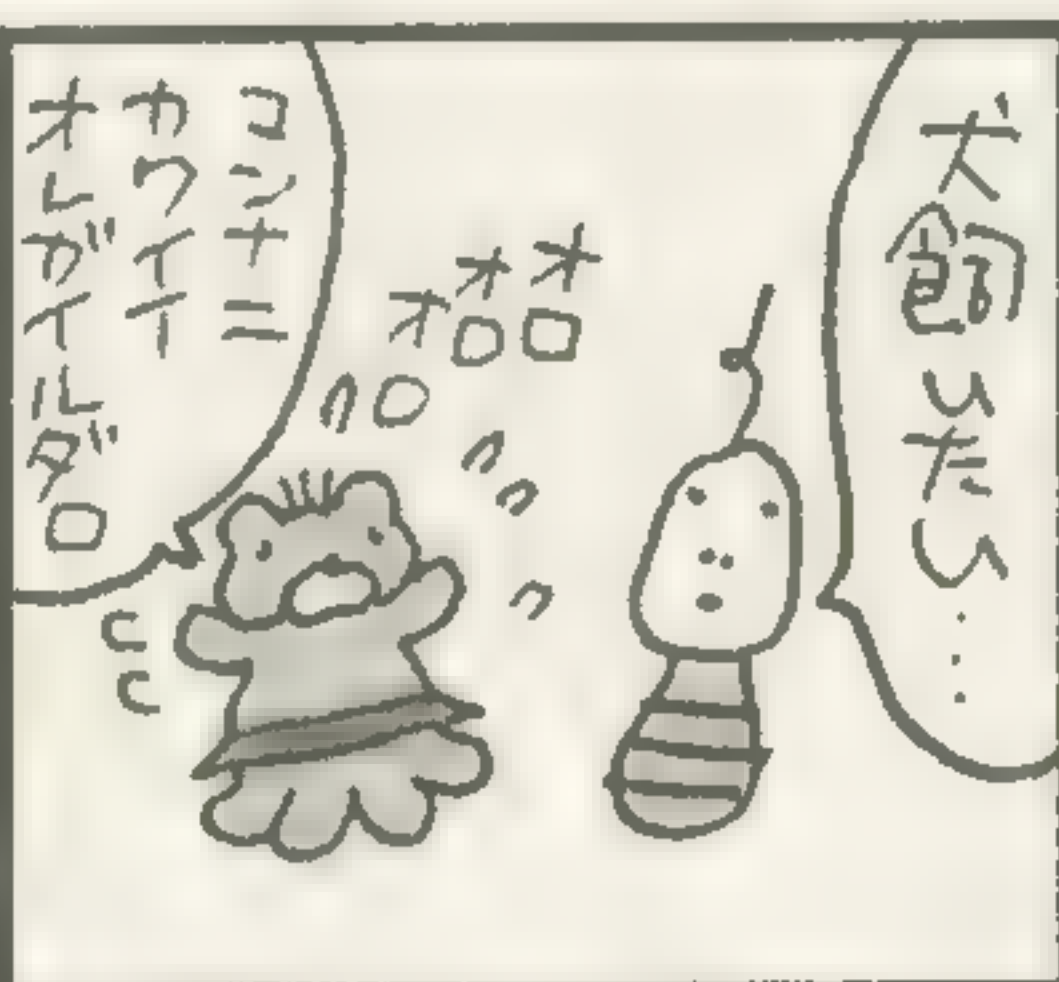 犬飼いたい…
オロ
オロ
オロ
コンナニ
カワイイ
オレガイルダロ